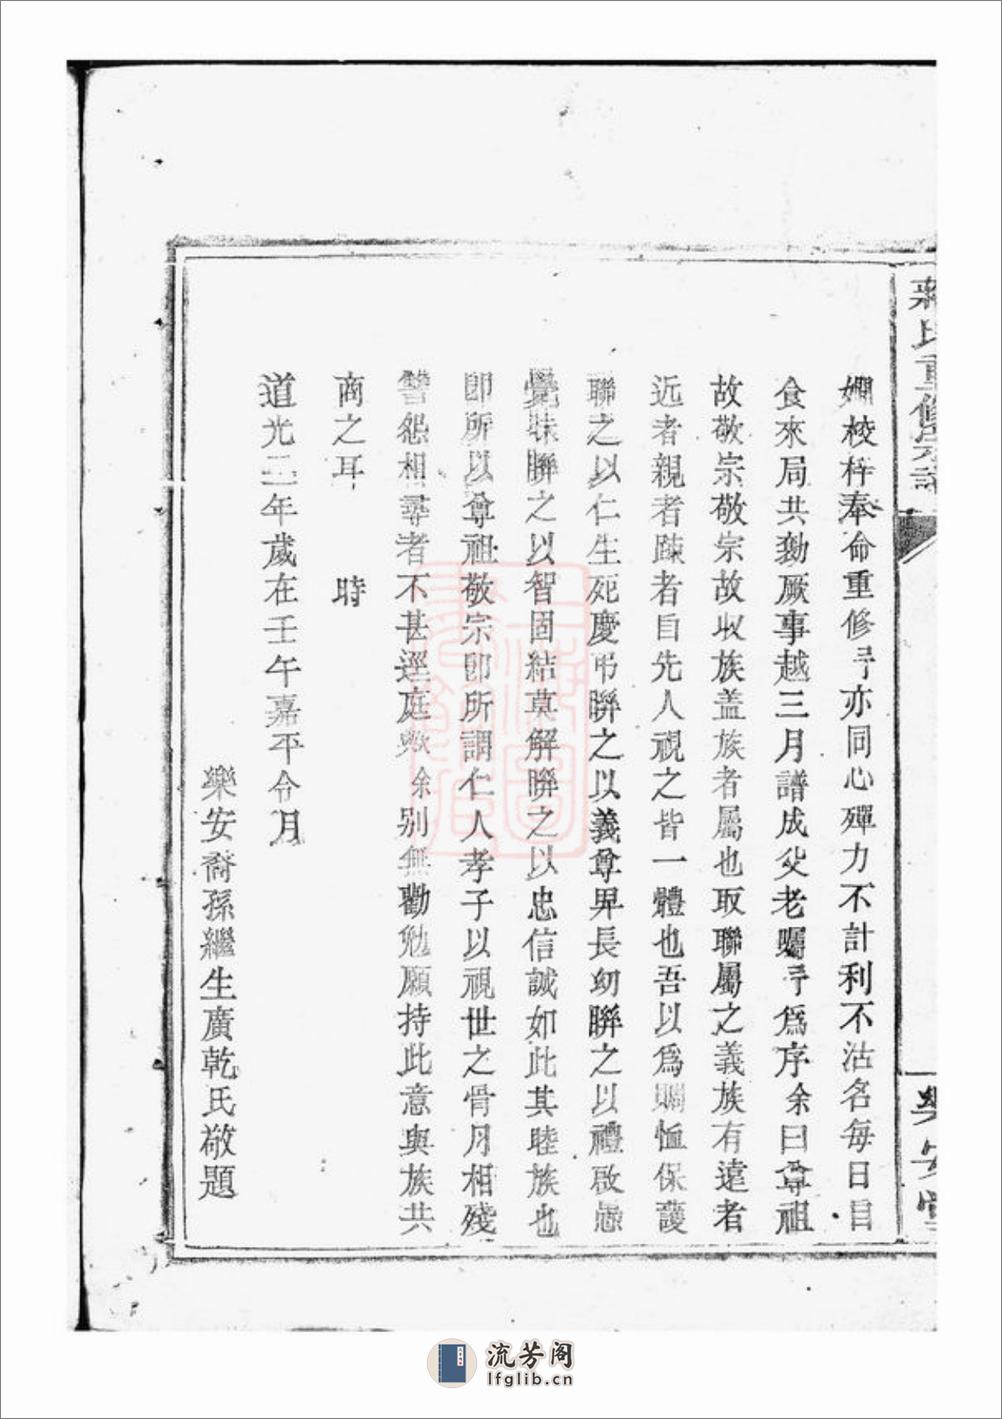 蔣氏重修宗譜
樂安堂
嫺校梓奉命重修予亦同心殫力不計利不沽名每日自
食來局共勷厥事越三月譜成父老囑予爲序余曰尊祖
故敬宗敬宗故收族盖族者屬也取聯屬之義族有遠者
近者親者踈者自先人視之皆一體也吾以爲賙恤保護
聯之以仁生死慶弔聯之以義尊卑長幼聯之以禮啟愚
覺昧聯之以智固結莫解聯之以忠信誠如此其睦族也
卽所以尊祖敬宗卽所謂仁人孝子以視世之骨月相殘
讐怨相尋者不甚逕庭歟余別無勸勉願持此意與族共
商之耳 時
道光二年歲在壬午嘉平令月
樂安裔孫繼生廣乾氏敬題
流芳阁
lfglib.cn